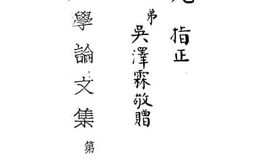 指正
弟
吳澤霖敬贈
學論文集
第